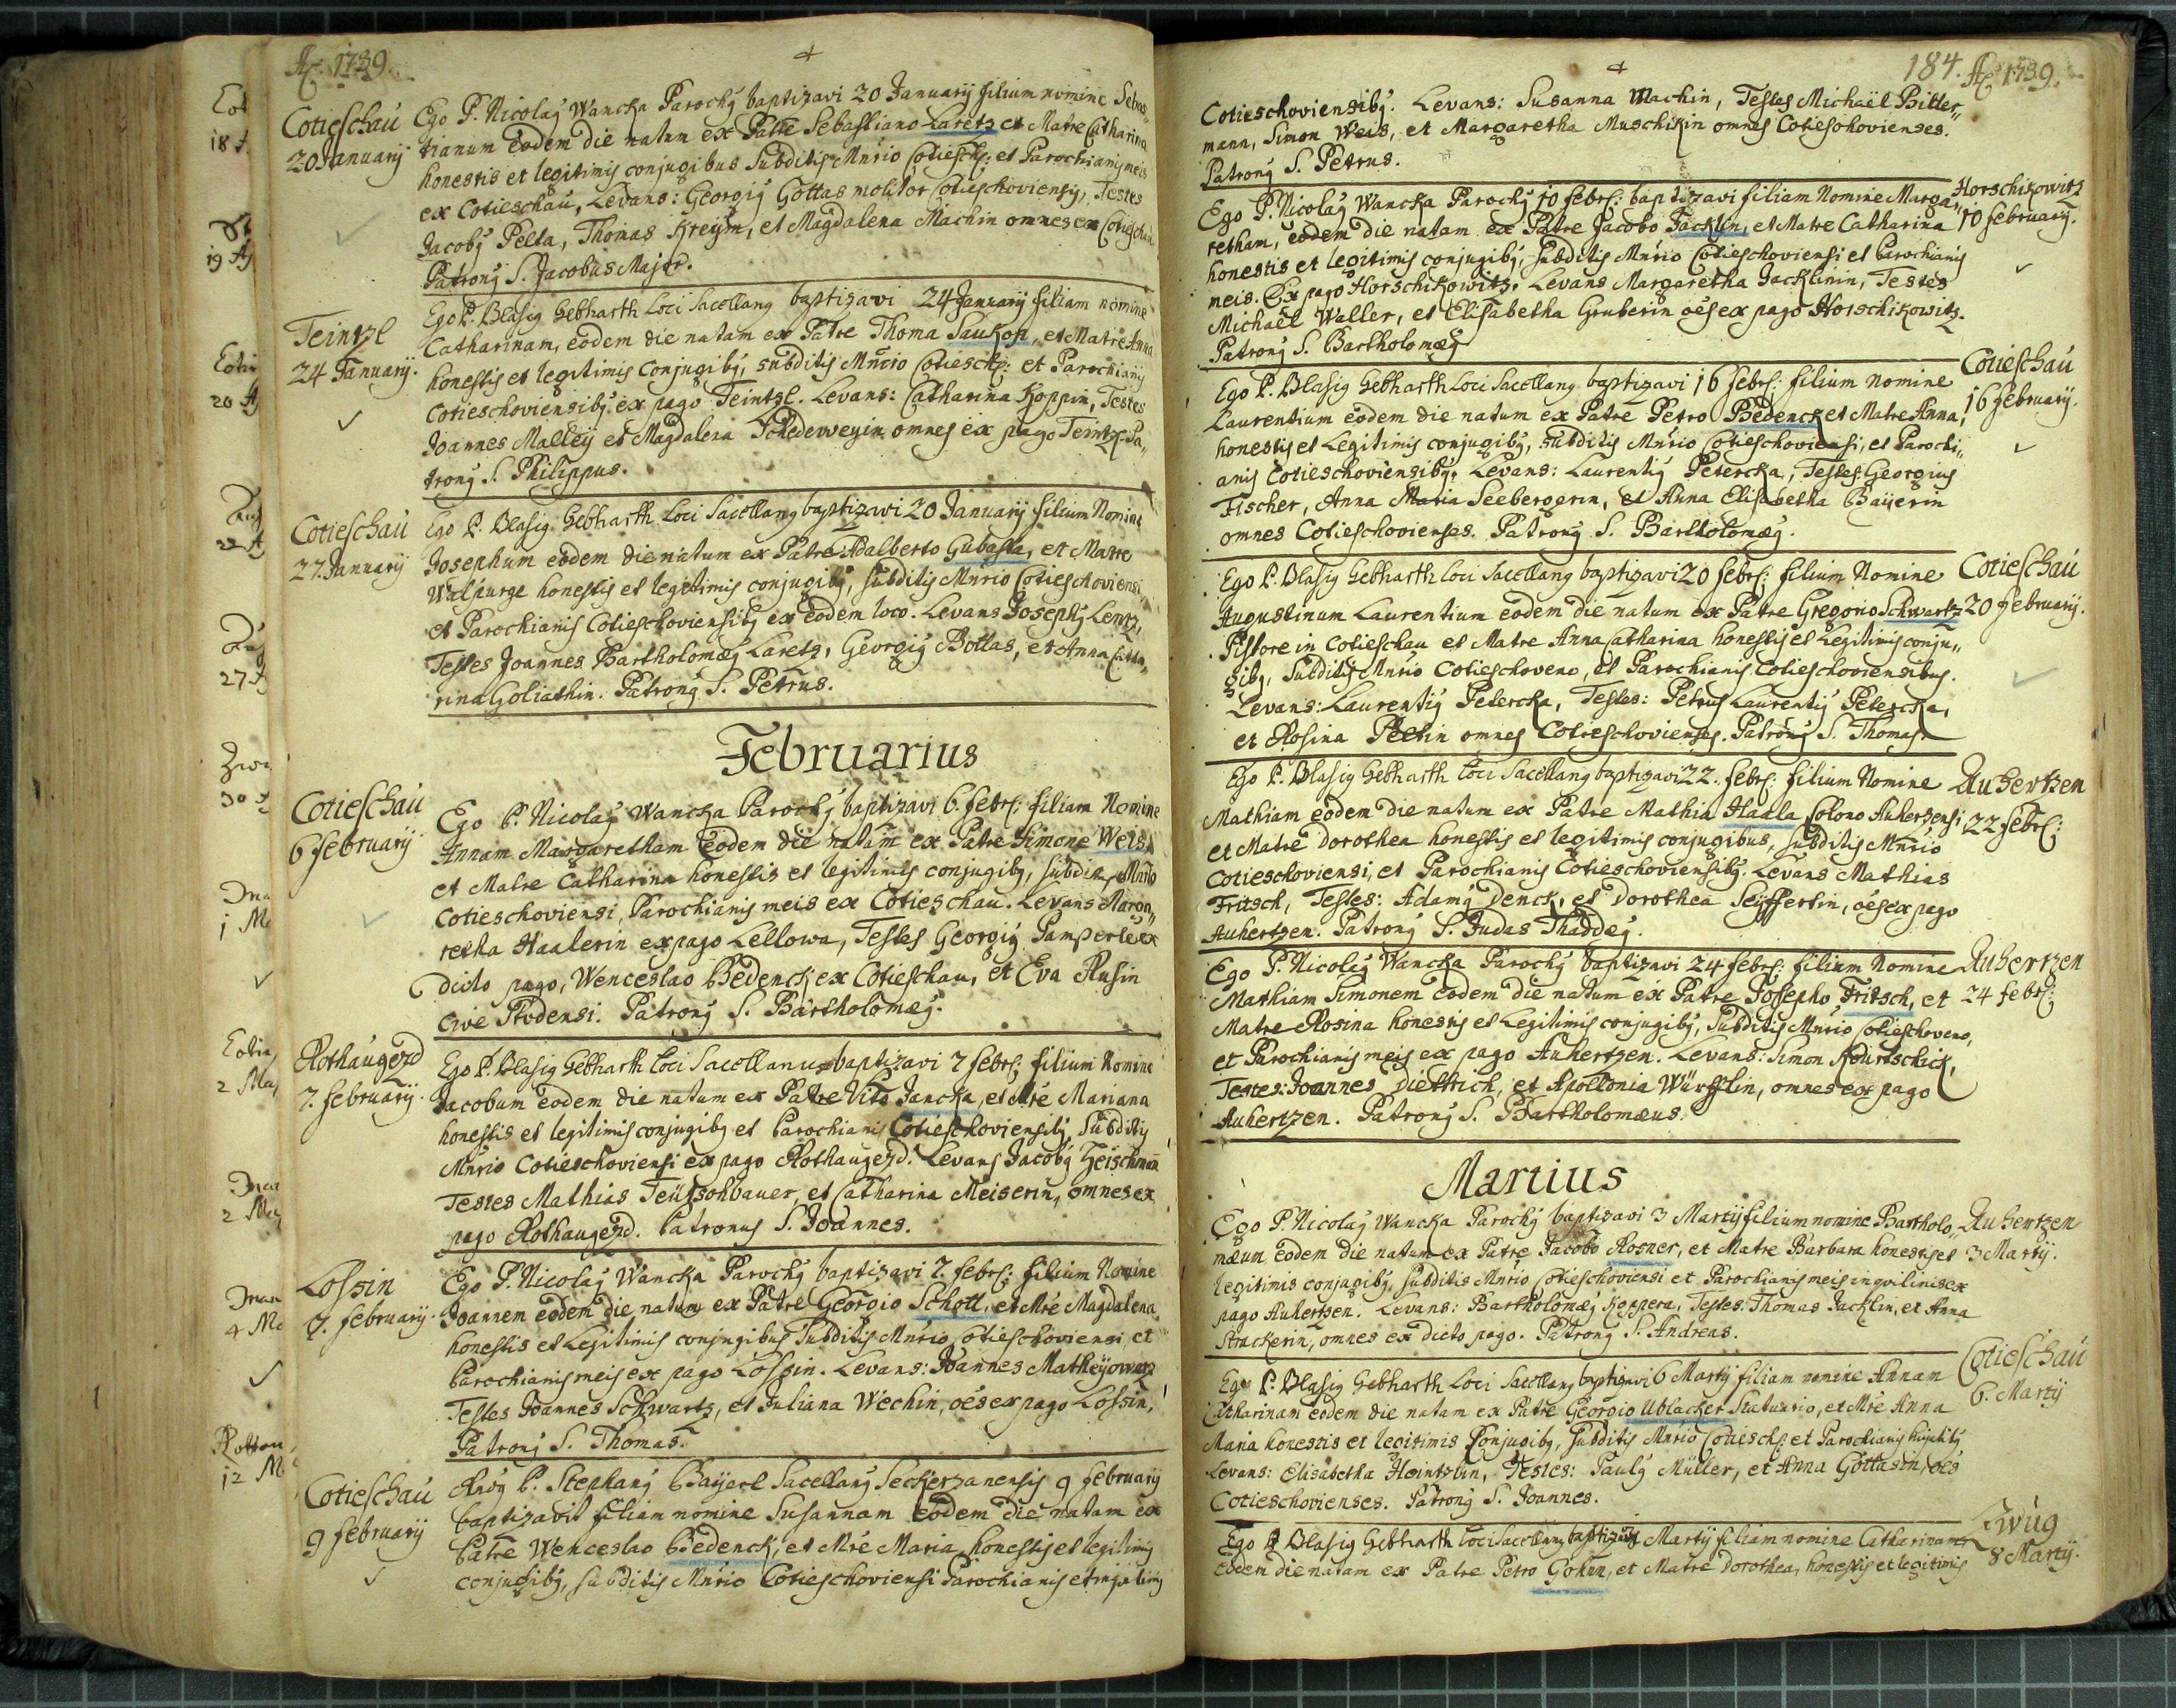 Aō. 1739.
Cotieschau
20 Januarij
Ego P. Nicolaȝ Wancka Parochȝ baptizavi 20 Januarij filium nomine Sebas„
tianum eodem die natum ex Patre Sebastiano Laretz et Matre Catharina
honestis et legitimis conjugibus Subditis Mn̄rio Cotiesch: et Parochianis meis
ex Cotieschau, Levans: Georgiȝ Gottas molitor Cotieschoviensis, Testes
Jacobȝ Pelta, Thomas Kreÿm, et Magdalena Machin omnes ex Cotieschau
Patronȝ S. Jacobus Major.
Teintzl
24 Januarij.
Ego P. Blasiȝ Gebharth Loci Sacellanȝ baptizavi 24 Januarij filiam nomine
Catharinam, eodem die natam ex Patre Thoma Saukop, et Matre Anna
honestis et legitimis conjugibȝ, subditis Mn̄rio Cotiesch: et Parochianis
Cotieschoviensibȝ ex pago Teintzl. Levans: Catharina Koppin, Testes
Joannes Malleÿ et Magdalena Schederweyin omnes ex pago Teintzl Pa„
tronȝ S. Philippus.
Cotieschau
27. Januarij
Ego P. Blasiȝ Gebharth Loci Sacellanȝ baptizavi 20 Januarij filium Nomine
Josephum eodem die natum ex Patre Adalberto Gubasta, et Matre
Walpurge honestis et legitimis conjugibȝ, subditis Mn̄rio Cotieschoviensi
et Parochianis Cotieschoviensibȝ ex eodem loco. Levans Josephȝ Lentz,
Testes Joannes Bartholomæȝ Laretz, Georgiȝ Bottas, et Anna Catha„
rina Goliathin. Patronȝ S. Petrus.
Februarius
Cotieschau
6 februarij
Ego P. Nicolaȝ Wancka Parochȝ baptizavi 6. febr: filiam Nomine
Annam Margaretham Eodem die natam ex Patre Simone Weis,
et Matre Catharina honestis et legitimis conjugibȝ, subditis Mn̄rio
Cotieschoviensi, Parochianis meis ex Cotieschau. Levans Marga„
retha Haalerin ex pago Lellowa, Testes Georgiȝ Pamperl ex
dicto pago, Wenceslao Bedenck ex Cotieschau, et Eva Rusin
cive Stodensi. Patronȝ S. Bartholomæȝ.
Rothaugezd
7. february.
Ego P. Blasiȝ Gebharth Loci Sacellanus baptizavi 7 febr: filium Nomine
Jacobum eodem die natum ex Patre Vito Jancka, et M̄re Mariana
honestis et legitimis conjugibȝ et Parochianis Cotieschoviensibȝ Subditis
Mn̄rio Cotieschoviensi ex pago Rothaugezd. Levans Jacobȝ Zeischman
Testes Mathias Teutschbauer, et Catharina Meiserin, omnes ex
pago Rothaugezd. Patronus S. Joannes.
Lossin
7. februarij.
Ego P. Nicolaȝ Wancka Parochȝ baptizavi 7. febr: filium Nomine
Joannem eodem die natum ex Patre Georgio Schott, et M̄re Magdalena
honestis et Legitimis conjugibus Subditis Mn̄rio Cotieschoviensi, et
Parochianis meis ex pago Lossin. Levans: Joannes Matheyowez
Testes Joannes Schwartz, et Juliana Wechin, oēs ex pago Lossin,
Patronȝ S. Thomas.
Cotieschau
9 februarij
Rn̄dȝ P. Stephanȝ Bayerl Sacellanȝ Seckerzanensis 9 februarij
baptizavit filiam nomine Susannam Eodem die natam ex
Patre Wenceslao Bedenck, et M̄re Maria, honestis et legitimis
conjugibȝ, subditis Mn̄rio Cotieschoviensi Parochianis et inquilinis
184. Aō 1739.
Cotieschoviensibȝ. Levans: Susanna Machin, Testes Michaël Bitter„
mann, Simon Weis, et Margaretha Muschikin omnes Cotieschovienses.
Patronȝ S. Petrus.
Ego P. Nicolaȝ Wancka Parochȝ 10 febr: baptizavi filiam Nomine Marga„
retham, eodem die natam ex Patre Jacobo Jacklin, et Matre Catharina
honestis et legitimis conjugibȝ, subditis Mn̄rio Cotieschoviensi et Parochianis
meis. Ex pago Horschikowitz. Levans Margaretha Jacklinin, Testes
Michaël Waller, et Elisabetha Gruberin oēs ex pago Horschikowitz.
Patronȝ S. Bartholomæȝ
Horschikowitz
10 februarij.
Ego P. Blasiȝ Gebharth Loci Sacellanȝ baptizavi 16 febr: filium nomine
Laurentium eodem die natum ex Patre Petro Bedenck et Matre Anna,
honestis et Legitimis conjugibȝ, subditis Mn̄rio Cotieschoviensi, et Parochi„
anis Cotieschoviensibȝ. Levans: Laurentiȝ Petercka, Testes: Georgius
Fischer, Anna Maria Seebergerin, et Anna Elisabetha Bayerin
omnes Cotieschovienses. Patronȝ S. Bartholomæȝ.
Cotieschau
16 februarij.
Ego P. Blasiȝ Gebharth loci Sacellanȝ baptizavi 20 febr: filium Nomine
Augustinum Laurentium eodem die natum ex Patre Gregorio Schwartz
Pistore in Cotieschau et Matre Anna Catharina honestis et Legitimis conju„
gibȝ, Subditis Mn̄rio Cotieschoveno, et Parochianis Cotieschoviensibus.
Levans: Laurentiȝ Petercka, Testes: Petrus Laurentiȝ Petercka,
et Rosina Peltin omnes Cotieschovienses. Patronȝ S. Thomas.
Cotieschau
20 februarij.
Ego P. Blasiȝ Gebharth loci Sacellanȝ baptizavi 22. febr: filium Nomine
Mathiam eodem die natum ex Patre Mathia Haala Colono Auherzensi
et Matre Dorothea honestis et legitimis conjugibus, subditis Mn̄rio
Cotieschoviensi, et Parochianis Cotieschoviensibȝ. Levans Mathias
Fritsch, Testes: Adamȝ Denck, et Dorothea Seyffertin, oēs ex pago
Auhertzen. Patronȝ S. Judas Thaddæȝ.
Auhertzen
22 febr:
Ego P. Nicolaȝ Wancka Parochȝ baptizavi 24 febr: filium Nomine
Mathiam Simonem eodem die natum ex Patre Josepho Fritsch, et
Matre Rosina honestis et Legitimis conjugibȝ, Subditis Mn̄rio Cotieschoveno,
et Parochianis meis ex pago Auhertzen. Levans: Simon Kourtschick,
Testes: Joannes Diettrich, et Apollonia Würfflin, omnes ex pago
Auhertzen. Patronȝ S. Bartholomæus.
Auhertzen
24 febr:
Martius
Ego P. Nicolaȝ Wancka Parochȝ baptizavi 3 Martij filium nomine Bartholo„
mæum eodem die natum ex Patre Jacobo Rosner, et Matre Barbara honestis et
legitimis conjugibȝ, subditis Mn̄rio Cotieschoviensi et Parochianis meis inquilinis ex
pago Auhertzen. Levans: Bartholomæȝ Koppera, Testes: Thomas Jacklin, et Anna
Strackerin, omnes ex dicto pago. Patronȝ S. Andreas.
Auhertzen
3 Martij.
Ego P. Blasiȝ Gebharth Loci Sacellanȝ baptizavi 6 Martij filiam nomine Annam
Catharinam eodem die natam ex Patre Georgio Ublacker Statuario, et M̄re Anna
Maria honestis et legitimis Conjugibȝ, subditis Mn̄rio Cotiesch: et Parochianis
Levans: Elisabetha Heintzlin, Testes: Paulȝ Müller, et Anna Gottasin, oēs
Cotieschovienses. Patronȝ S. Joannes.
Cotieschau
6. Martij
Ego P. Blasiȝ Gebharth Loci Sacellanȝ baptizavi Martij filiam nomine Catharinam
eodem die natam ex Patre Petro Gohnn, et Matre Dorothea, honestis et legitimis
Zwug
8 Martij.